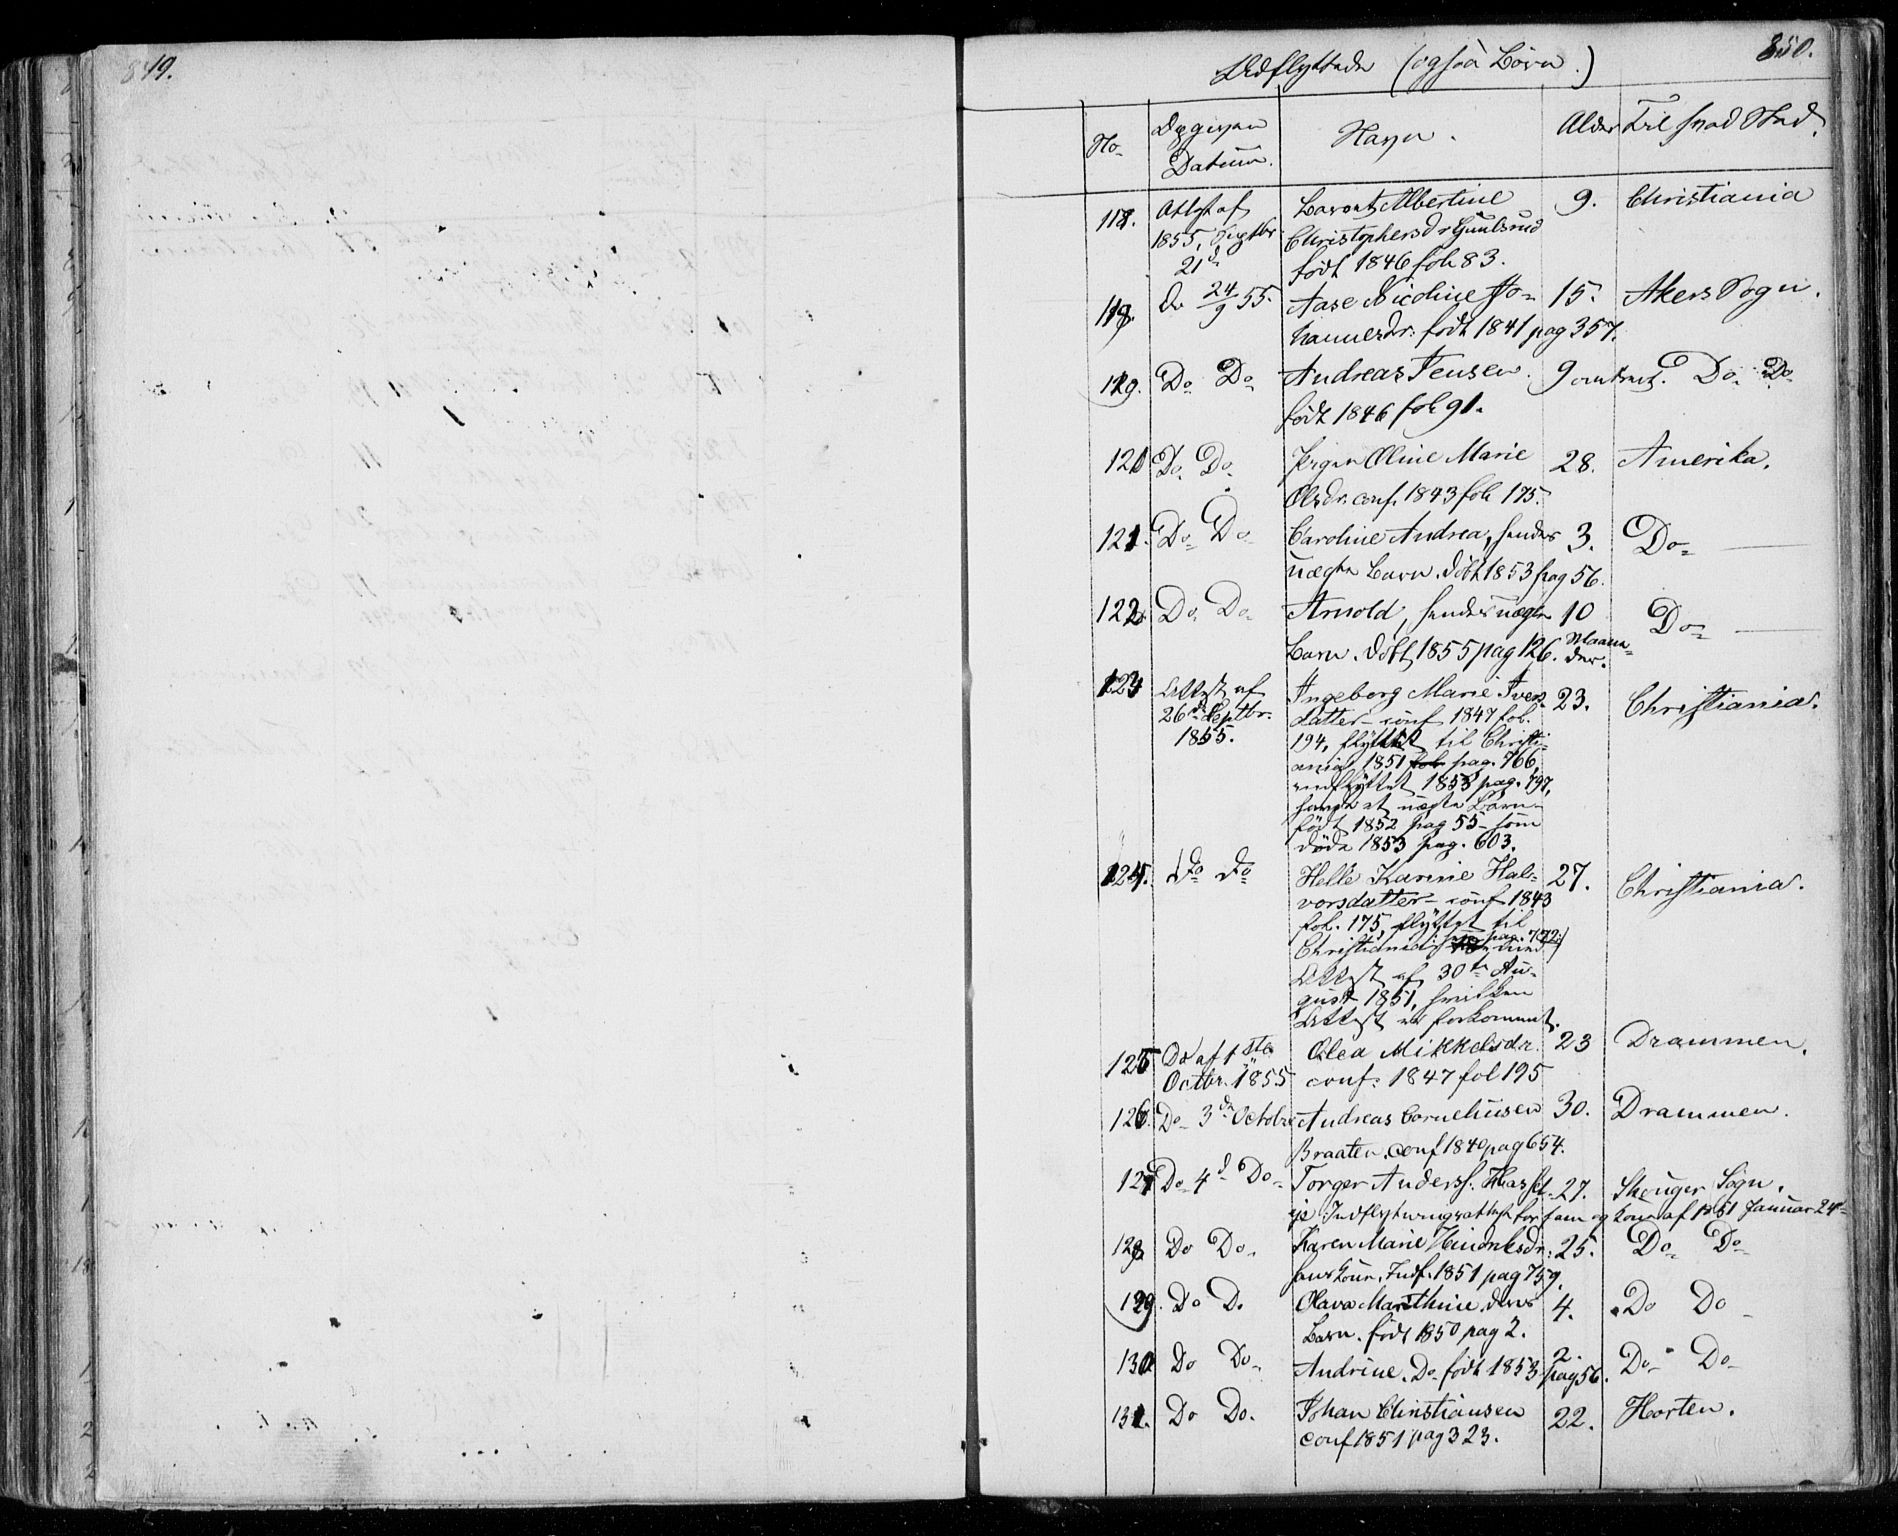 849.
850.
Udflyttede (ogsaa Børn.)
No
Dag og
Datum.
Navn.
Alder
Til hvad Sted.
118.
Attest af
1855, Septbr.
21de
Albertine
Christophersdr
født 1846 fol. 83.
9.
Christiania
Do 24/9 55.
Aase Nicoline Jo-
hannesdr: født 1841 pag 357.
15.
Akers Sogn.
Do Do
Andreas Jensen.
født 1846 fol. 91.
9
Do Do
Do. Do.
Oline Marie
Olsdr. conf. 1843 fol. 175.
28.
Amerika.
121.
Do Do
Caroline Andrea, hendes
uægte Barn. døbt 1853 pag 56.
3.
Do
122.
Do. Do
Arnold, hendes uægte
Barn. døbt 1855 pag 126.
10
Maane-
der.
Do
Attest af
26de Septbr.
1855.
Ingeborg Marie Ivers-
datter – conf. 1847 fol.
194, flyttet til Christi-
ania 1851 fol. pag. 766,
indflyttet 1853 pag. 797,
havde et uægte Barn
født 1852 pag 55 – som
døde 1853 pag. 603.
23.
Christiania.
Do Do
Helle Karine Hal-
vorsdatter – conf. 1843
fol. 175, flyttet til
Christiania
Attest af 30te Au-
gust 1851, hvilken
Attest er forkommet.
27.
Christiania.
125
Do af 1ste
Octbr. 1855
Olea Mikkelsdr.
conf. 1847 fol 195
23
Drammen.
126.
Do 3de Octobr
Andreas Corneliusen
Braaten. conf 1840 pag 654.
30.
Drammen.
127
Do 4de Do
Torger Anderss.
Indflytningsattest for ham og Kone af 1851 Januar 24de
27.
Skouger Sogn.
128
Do Do.
Karen Marie Hendriksdr.
hans Kone. Indf. 1851 pag 759.
25.
Do Do
129.
Do Do
Olava Marthine. deres
Barn. født 1850 pag 2.
4.
Do Do
130
Do Do
Andrine. Do født 1853 pag 56.
2.
Do Do
131.
Do Do.
Johan Christiansen
conf 1851 pag 323.
22.
Horten.